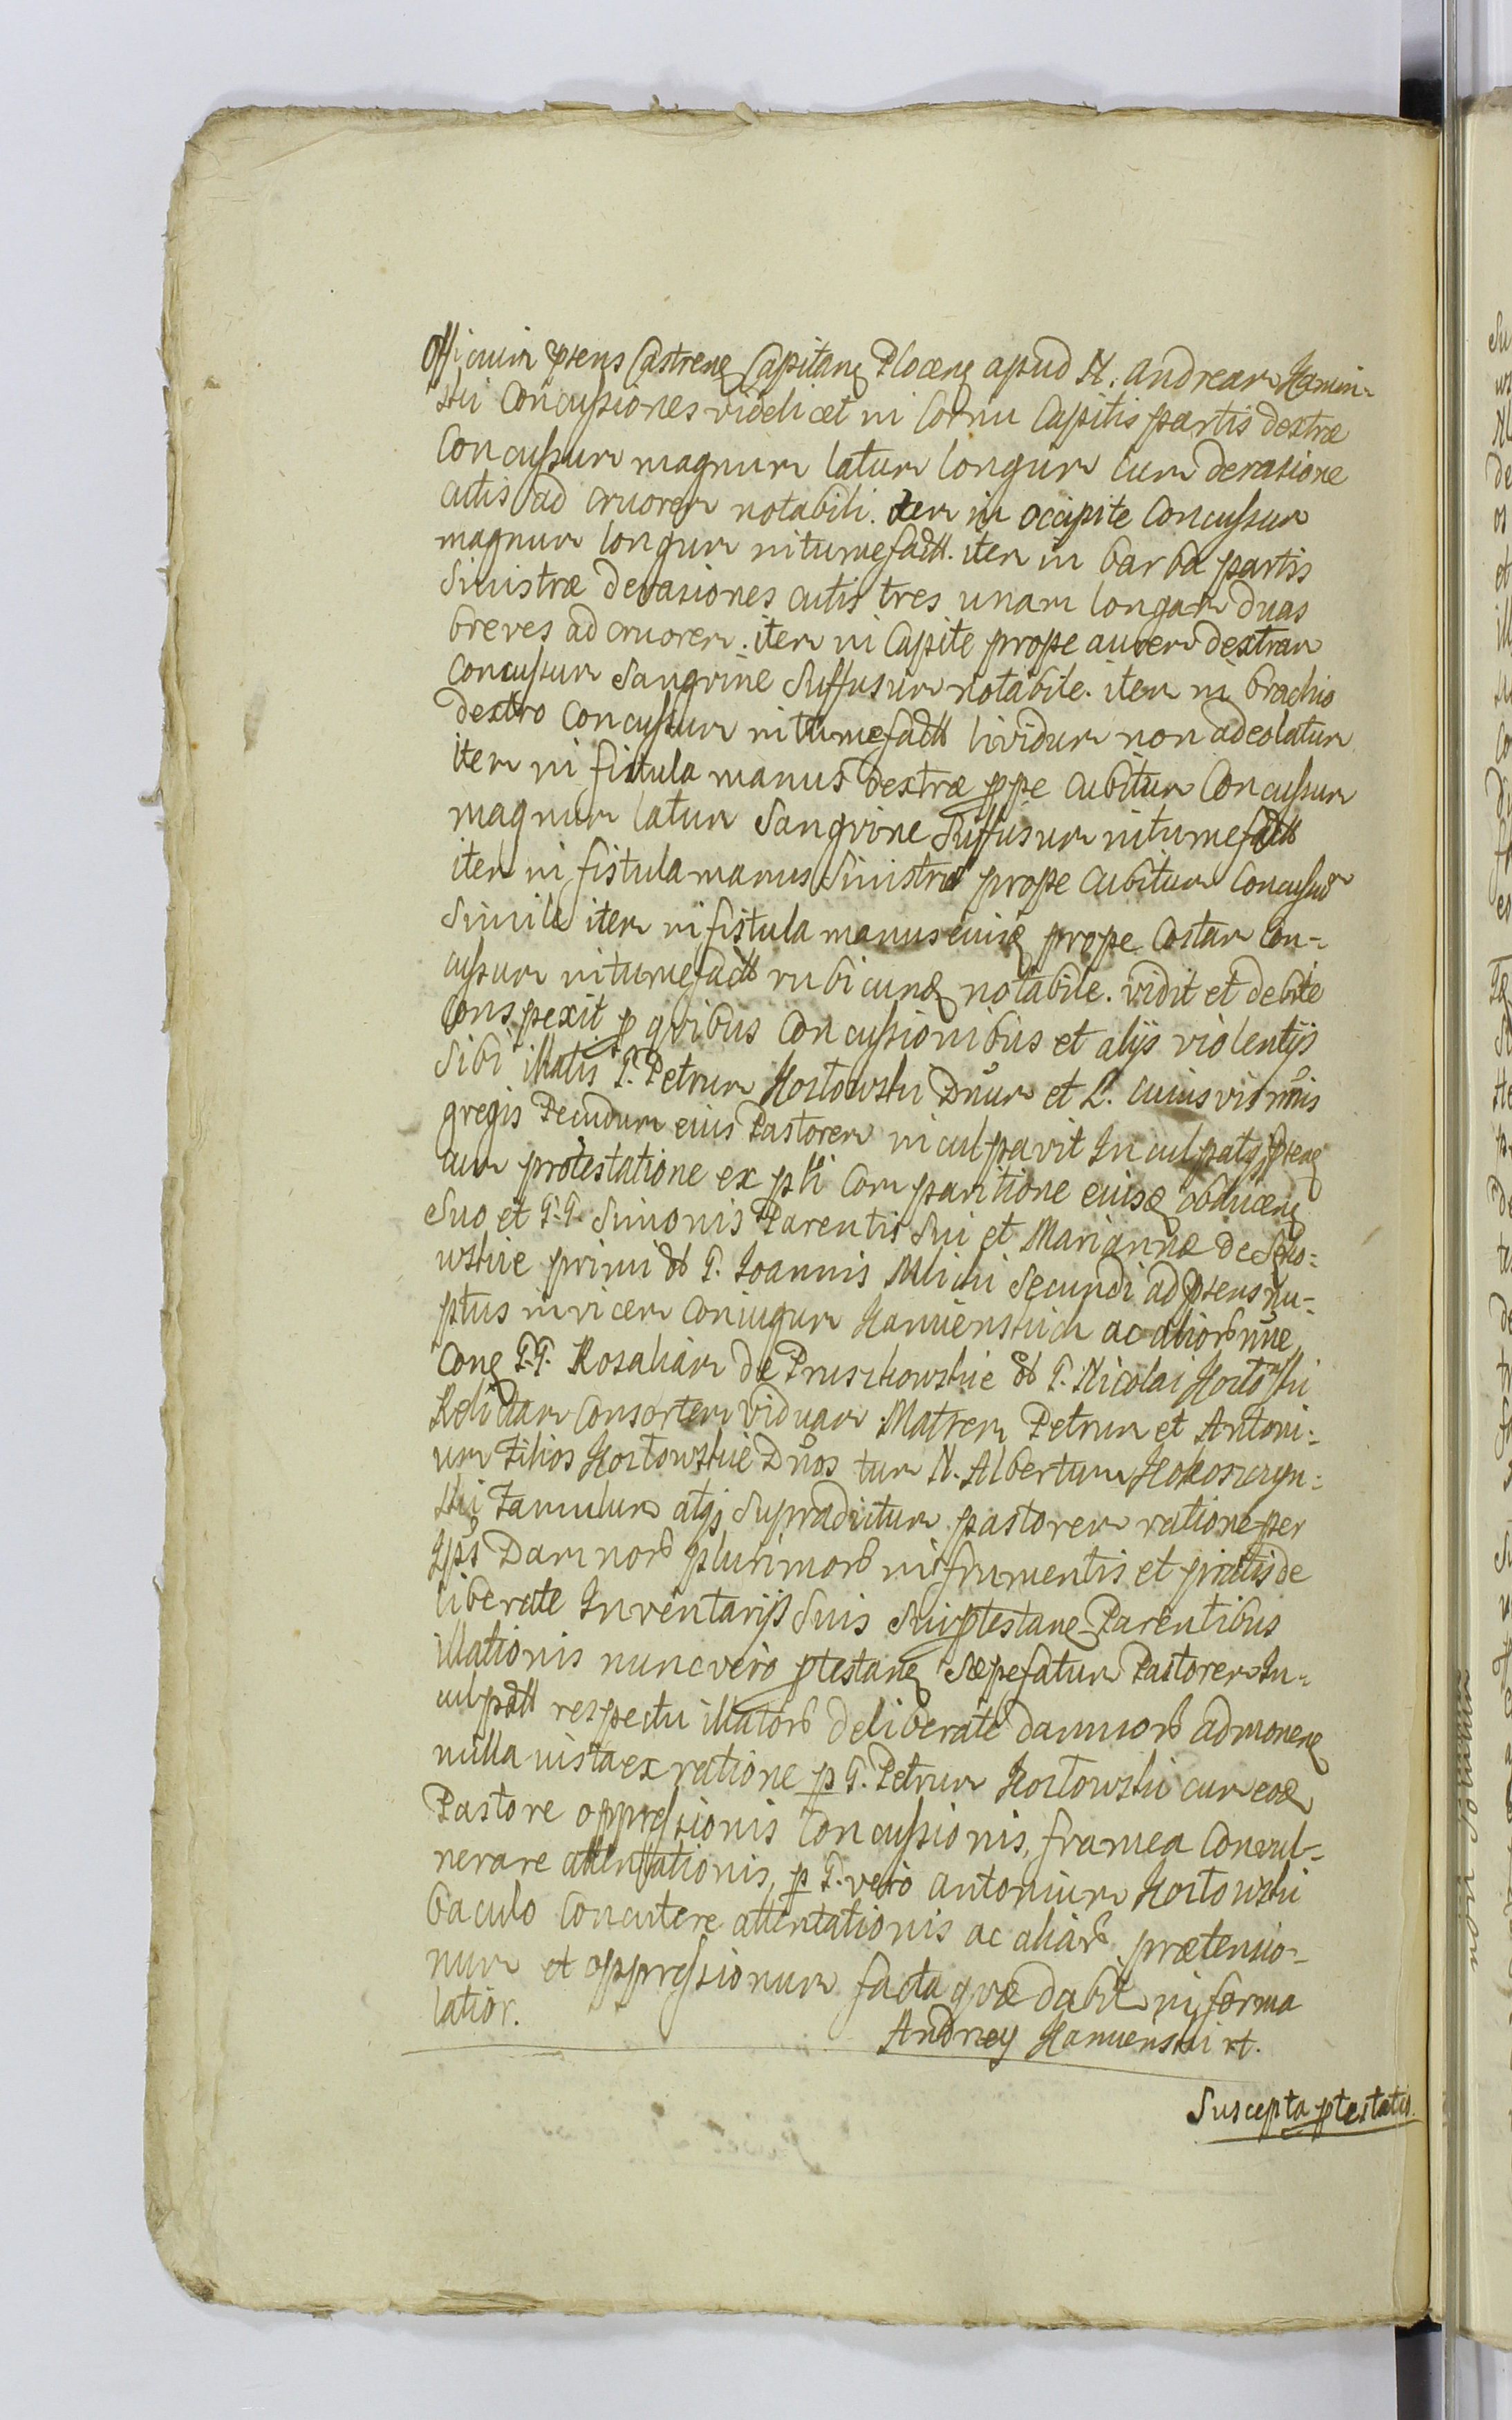 Officium pntens Castrense Capitan Plocen apud N. Andream Kamin-
ski Concussiones videlicet in Cornu Capitis partis dextræ
Concussum magnum latum longum cum derasione
cutis ad cruorem notabili. Item in occipite Concussum
magnum longum intumefactt. item in barba partis
Sinistræ derasiones cutis tres unam longam duas
breves ad cruorem. item in Capite prope aurem dextram
Concussum Sangvine Suffusum notabile. item in brachio
dextro Concussum intumefactt lividum non adeo latum
item in fistula manus dextræ ppe cubitum Concussum
magnum latum Sangvine Suffusum intumefactt
item in fistula manus Sinistræ prope cubitum Concussum
Simile item in fistula manus eiusd prope Costam Con-
cussum intumefactt rubicund notabile. vidit et debite
Conspexit p qvibus Concussionibus et alijs violentijs
Sibi illatis G. Petrum Kostowski Dnum et L. cuiusvis nnis
gregis Pecudum eius Pastorem inculpavit Inculpatq pntens
cum protestatione ex pti Comparitione eiusd obducend
Suo et G.G. Simonis Parentis Sui et Mariannæ de
wskie primi et G. Joannis Mlicki Secundi ad pntens nu-
ptus invicem Coniugum Kamienskich ac aliorb nne
Cong G.G. Rosaliam de Pruszkowskie et G. Nicolai Kostowski
Relictam Consortem Viduam Matrem Petrum et Antoni-
um Filios Kostowskie Dnos tum N. Albertum Kokoszczyn-
ski Famulum atq Supradictum pastorem ratione per
Ipss Damnorb plurimorb in frumentis et pratis de
liberate Inventarijs Suis Sui ptestane Parentibus
illationis nunc vero ptestang Sæpefatum Pastorem In-
culpatt respectu illatorb deliberate damnorb admonend
nulla iusta ex ratione p G. Petrum Kostowski cum eod
Pastore oppressionis Concussionis, framea Convul-
nerare attentationis, p G. vero Antonium Kostowski
baculo Concutere attentationis ac aliarb prætensio-
num et oppressionum facta qvæ dabit in forma
latior.
Andrzey Kamienski rt.
Suscepta ptestatio.